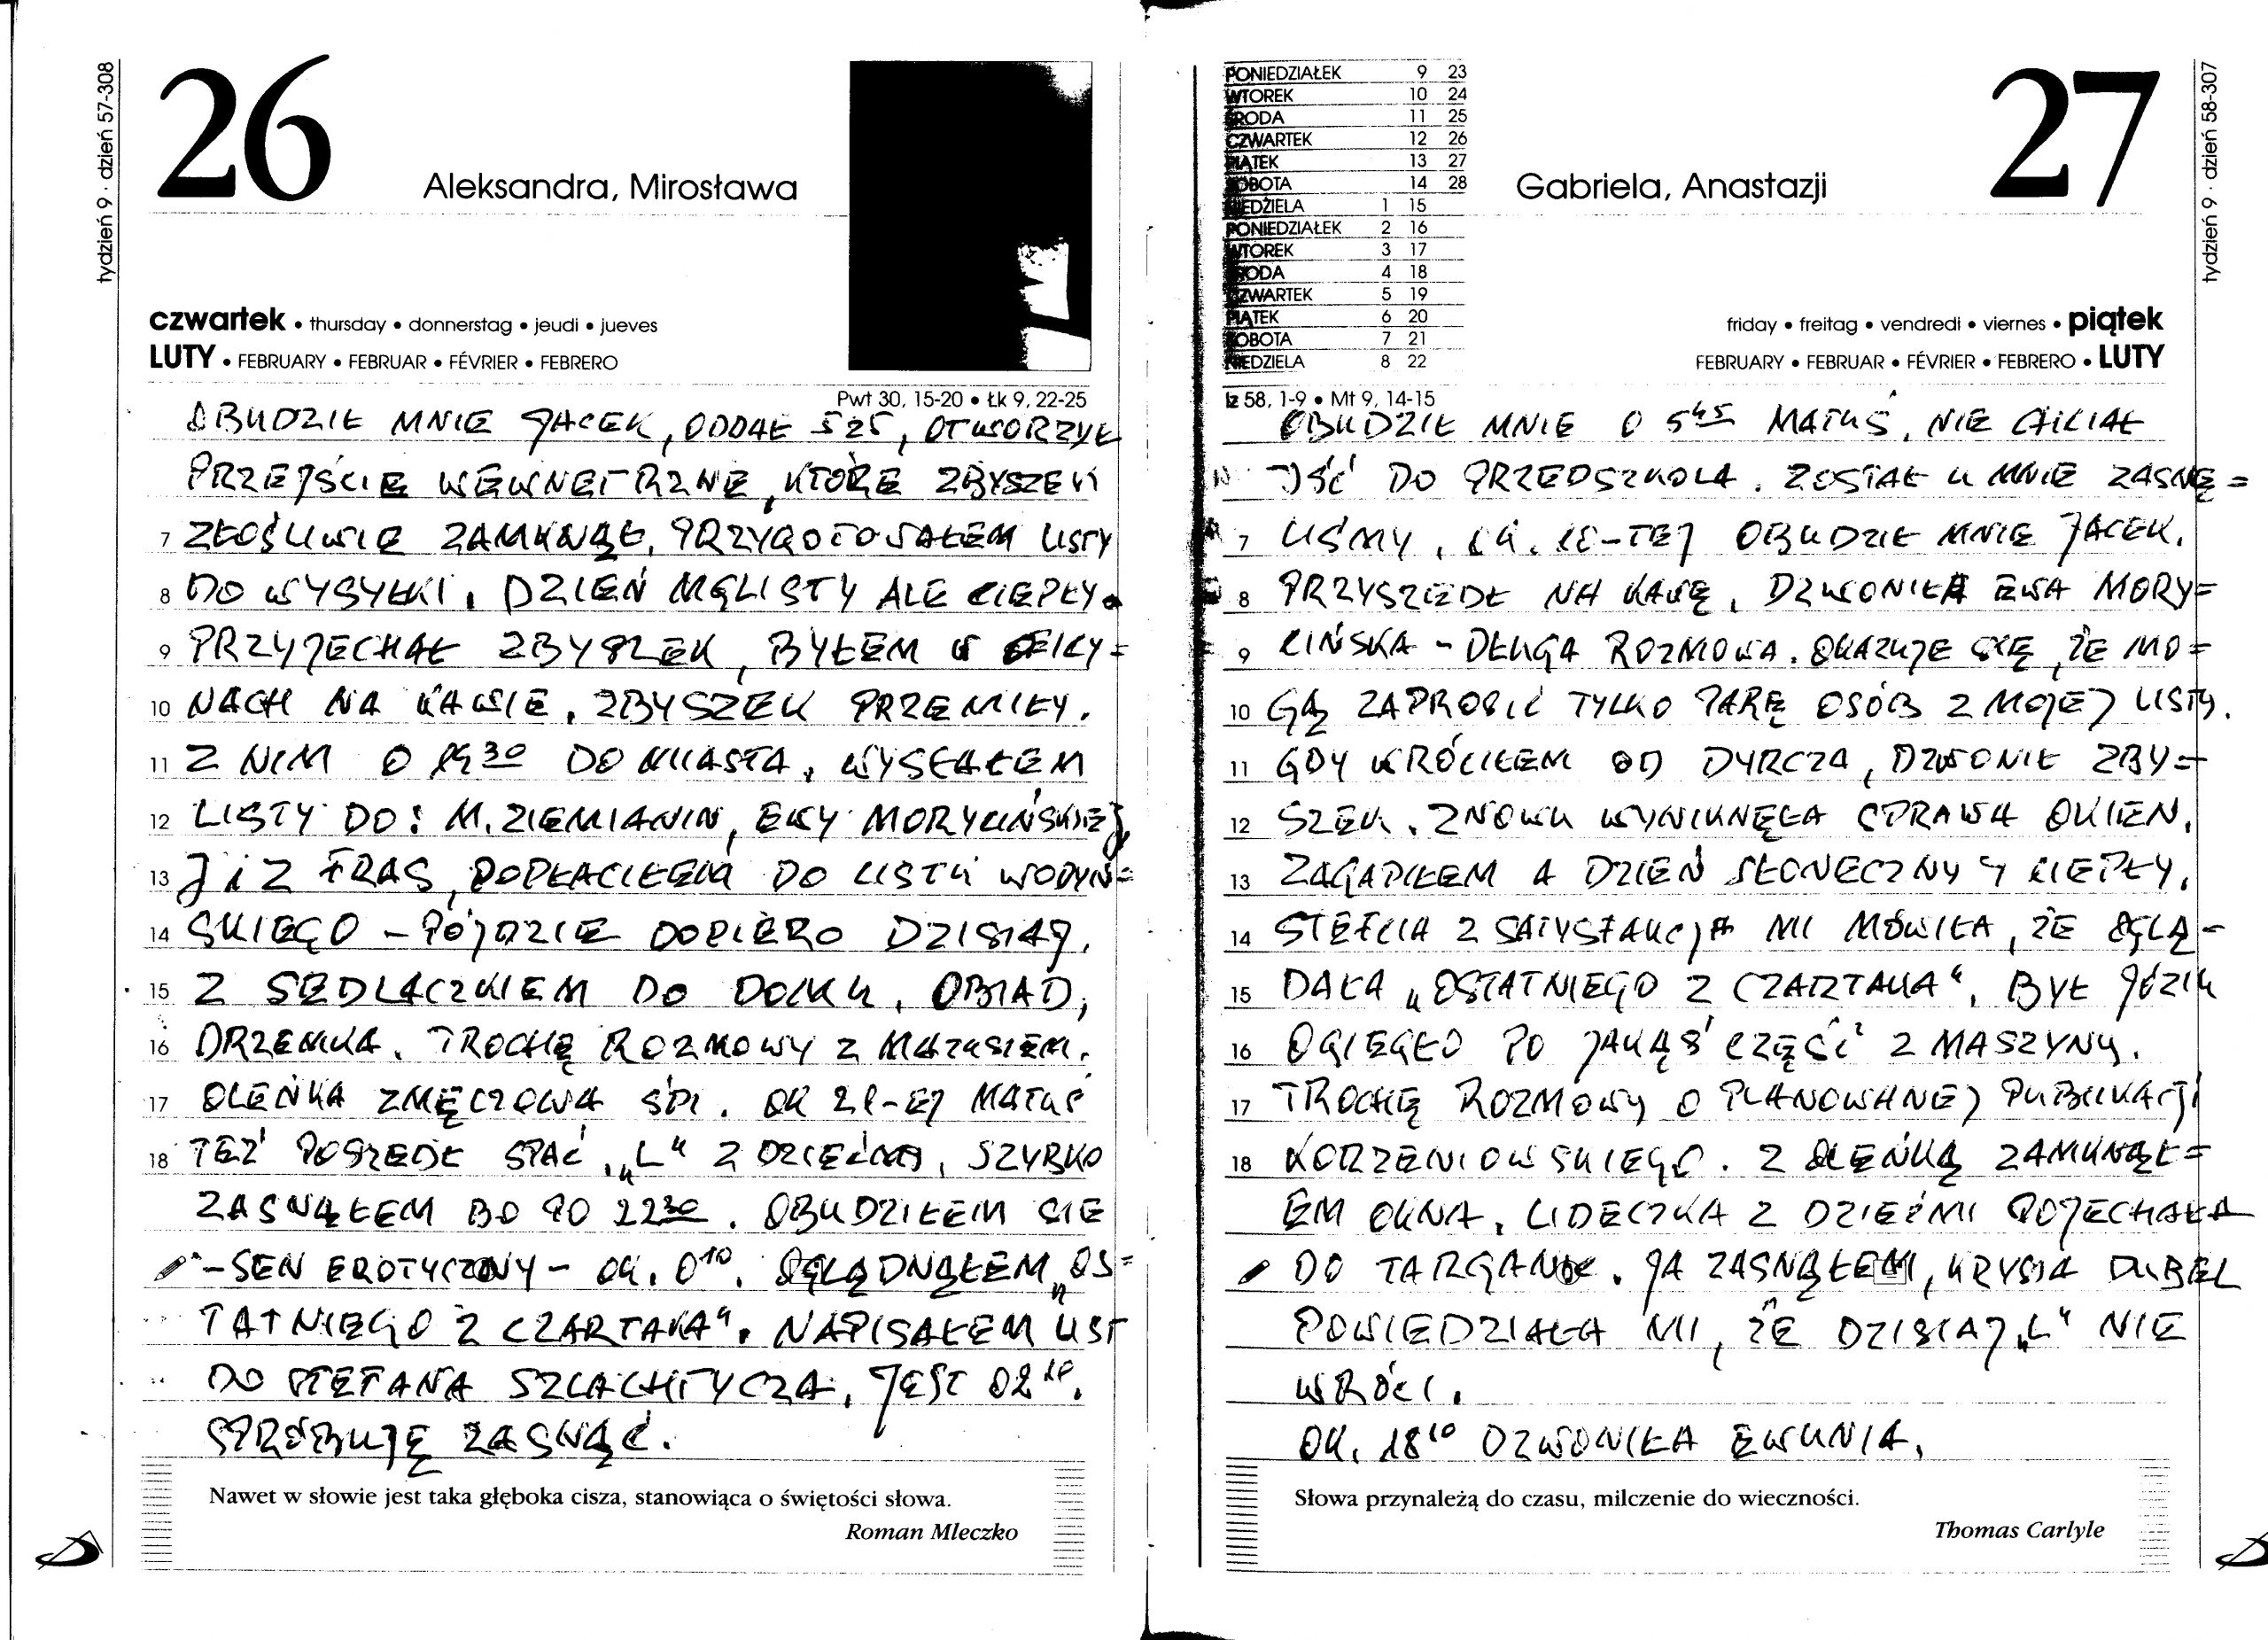 tydzień 9 · dzień 57-308
26
Aleksandra, Mirosława
czwartek • thursday • donnerstag • jeudi • jueves
LUTY • FEBRUARY • FEBRUAR • FÉVRIER • FEBRERO
Pwt 30, 15-20 • Łk 9, 22-25
OBUDZIŁ MNIE JACEK, ODDAŁ 525, OTWORZYŁ
PRZEJŚCIE WEWNĘTRZNE, KTÓRE ZBYSZEK
7 ZŁOŚLIWIE ZAMKNĄŁ, PRZYGOTOWAŁEM LISTY
8 DO WYSYŁKI. DZIEŃ MGLISTY ALE CIEPŁY.
9 PRZYJECHAŁ ZBYSZEK, BYŁEM W OFICY=
10 NACH NA KAWIE, ZBYSZEK PRZEMIŁY.
11 Z NIM O DO MIASTA, WYSŁAŁEM
12 LISTY DO: M. ZIEMIANIN, EWY MORYCIŃSKIEJ,
13 J i Z FRAS, DOPŁACIŁEM DO LISTU WODYŃ=
14 SKIEGO – PÓJDZIE DOPIERO DZISIAJ.
15 Z SEDLACZKIEM DO DOMKU, OBIAD,
16 DRZEMKA. TROCHĘ ROZMOWY Z MATUSIEM.
17 OLEŃKA ZMĘCZONA ŚPI. OK 21-EJ MATUŚ
18 TEŻ POSZEDŁ SPAĆ, „L“ Z DZIEĆMI, SZYBKO
ZASNĄŁEM BO PO 22 30. OBUDZIŁEM SIĘ
– SEN EROTYCZNY – OK. 0 10. OGLĄDNĄŁEM „OS=
TATNIEGO Z CZARTAKA“. NAPISAŁEM LIST
DO STEFANA SZLACHTYCZA, JEST 02 10.
SPRÓBUJĘ ZASNĄĆ.
Nawet w słowie jest taka głęboka cisza, stanowiąca o świętości słowa.
Roman Mleczko
PONIEDZIAŁEK 9 23
WTOREK 10 24
ŚRODA 11 25
CZWARTEK 12 26
PIĄTEK 13 27
SOBOTA 14 28
NIEDZIELA 1 15
PONIEDZIAŁEK 2 16
WTOREK 3 17
ŚRODA 4 18
CZWARTEK 5 19
PIĄTEK 6 20
SOBOTA 7 21
NIEDZIELA 8 22
Gabriela, Anastazji
27
tydzień 9 · dzień 58-307
friday • freitag • vendredi • viernes • piątek
FEBRUARY • FEBRUAR • FÉVRIER • FEBRERO • LUTY
Iz 58, 1-9 • Mt 9, 14-15
OBUDZIŁ MNIE O 5 45 MATUŚ, NIE CHCIAŁ
IŚĆ DO PRZEDSZKOLA. ZOSTAŁ U MNIE ZASNĘ=
7 LIŚMY, OK. 10-TEJ OBUDZIŁ MNIE JACEK.
8 PRZYSZEDŁ NA KAWĘ, DZWONIŁA EWA MORY=
9 CIŃSKA – DŁUGA ROZMOWA. OKAZUJE SIĘ, ŻE MO=
10 GĄ ZAPROSIĆ TYLKO PARĘ OSÓB Z MOJEJ LISTY.
11 GDY WRÓCIŁEM OD DYRCZA, DZWONIŁ ZBY=
12 SZEK. ZNOWU WYNIKNĘŁA SPRAWA OKIEN.
13 ZAGAPIŁEM A DZIEŃ SŁONECZNY Y CIEPŁY.
14 STEFCIA Z SATYSFAKCJĄ MI MÓWIŁA, ŻE OGLĄ–
15 DAŁA „OSTATNIEGO Z CZARTAKA“. BYŁ JÓZIU
16 OGIEGŁO PO JAKĄŚ CZĘŚĆ Z MASZYNY.
17 TROCHĘ ROZMOWY O PLANOWANEJ PUBLIKACJI
18 KORZENIOWSKIEGO. Z OLEŃKĄ ZAMKNĄŁ=
EM OKNA. LIDECZKA Z DZIEĆMI POJECHAŁA
DO TARGANIC. JA ZASNĄŁEM, KRYSIA DUBEL
POWIEDZIAŁA MI, ŻE DZISIAJ „L“ NIE
WRÓCI.
OK. 18 10 DZWONIŁA EWUNIA.
Słowa przynależą do czasu, milczenie do wieczności.
Thomas Carlyle